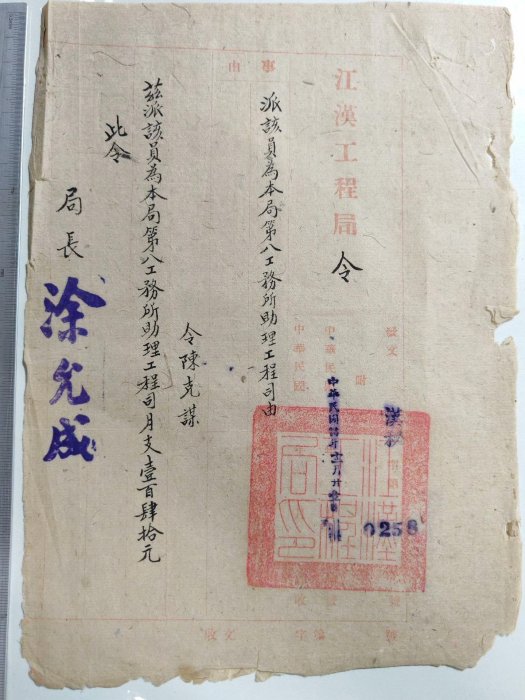 江漢工程局令
事由
派該員為本局第八工務所助理工程司由
令陳克謀
茲派該員為本局第八工務所助理工程司月支壹百肆拾元
此令
局長
涂允成
發文
附
中華民國
中華民國
漢
0258
收文
字
號